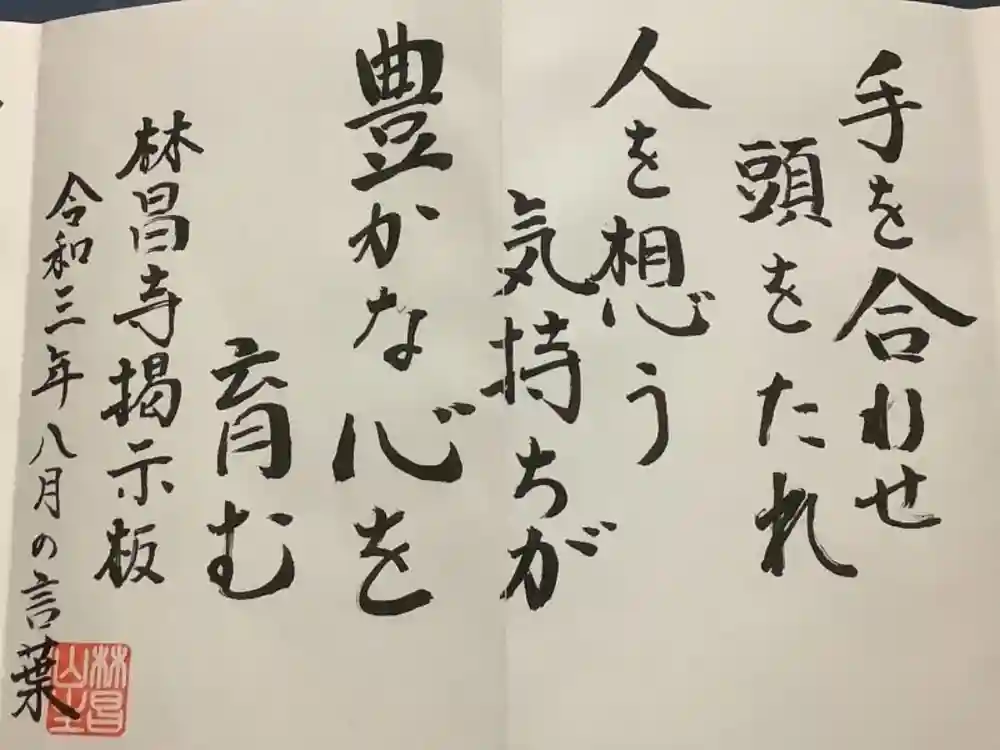 手を合わせ
頭をたれ
人を想う
気持ちが
豊かな心を
育む
林昌寺掲示板
令和三年八月の言葉
林昌